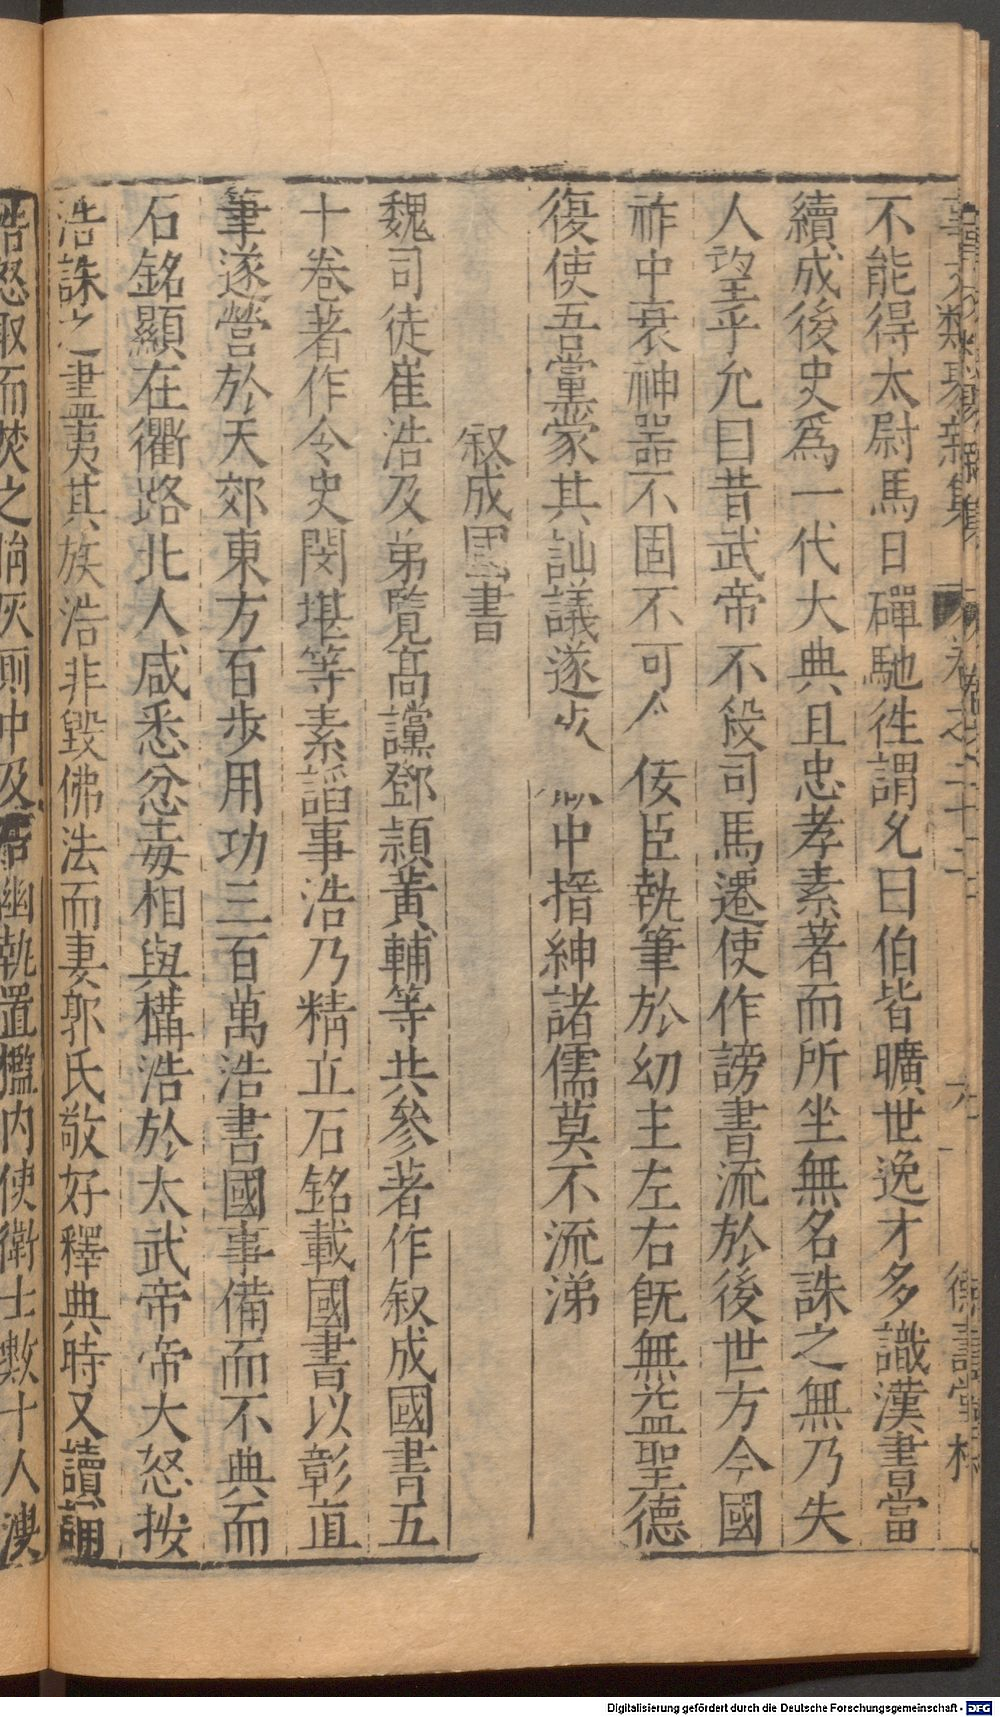 不能得太尉馬日磾馳徃謂允曰伯喈曠世逸才多識漢書當
續成後史爲一代大典且忠孝素著而所坐無名誅之無乃失
人望乎允曰昔武帝不殺司馬遷使作謗書流於後世方今國
祚中衰神噐不固不可令佞臣執筆於幼主左右旣無益聖德
復使吾黨蒙其訕議遂 中搢紳諸儒莫不流涕
叙成國書
魏司徒崔浩及弟覽高讜鄧頴黃輔等共參著作叙成國書五
十卷著作令史閔堪等素諂事浩乃精立石銘載國書以彰直
筆遂營於天郊東方百步用功三百萬浩書國事備而不典而
石銘顯在衢路北人咸悉忿毒相與構浩於太武帝帝大怒按
浩誅之盡夷其族浩非毀佛法而妻郭氏敬好釋典時又讀誦
浩怒取而焚之捐灰厠中及浩幽執置檻內使衛士數十人溲
Digitalisierung gefördert durch die Deutsche Forschungsgemeinschaft - DFG